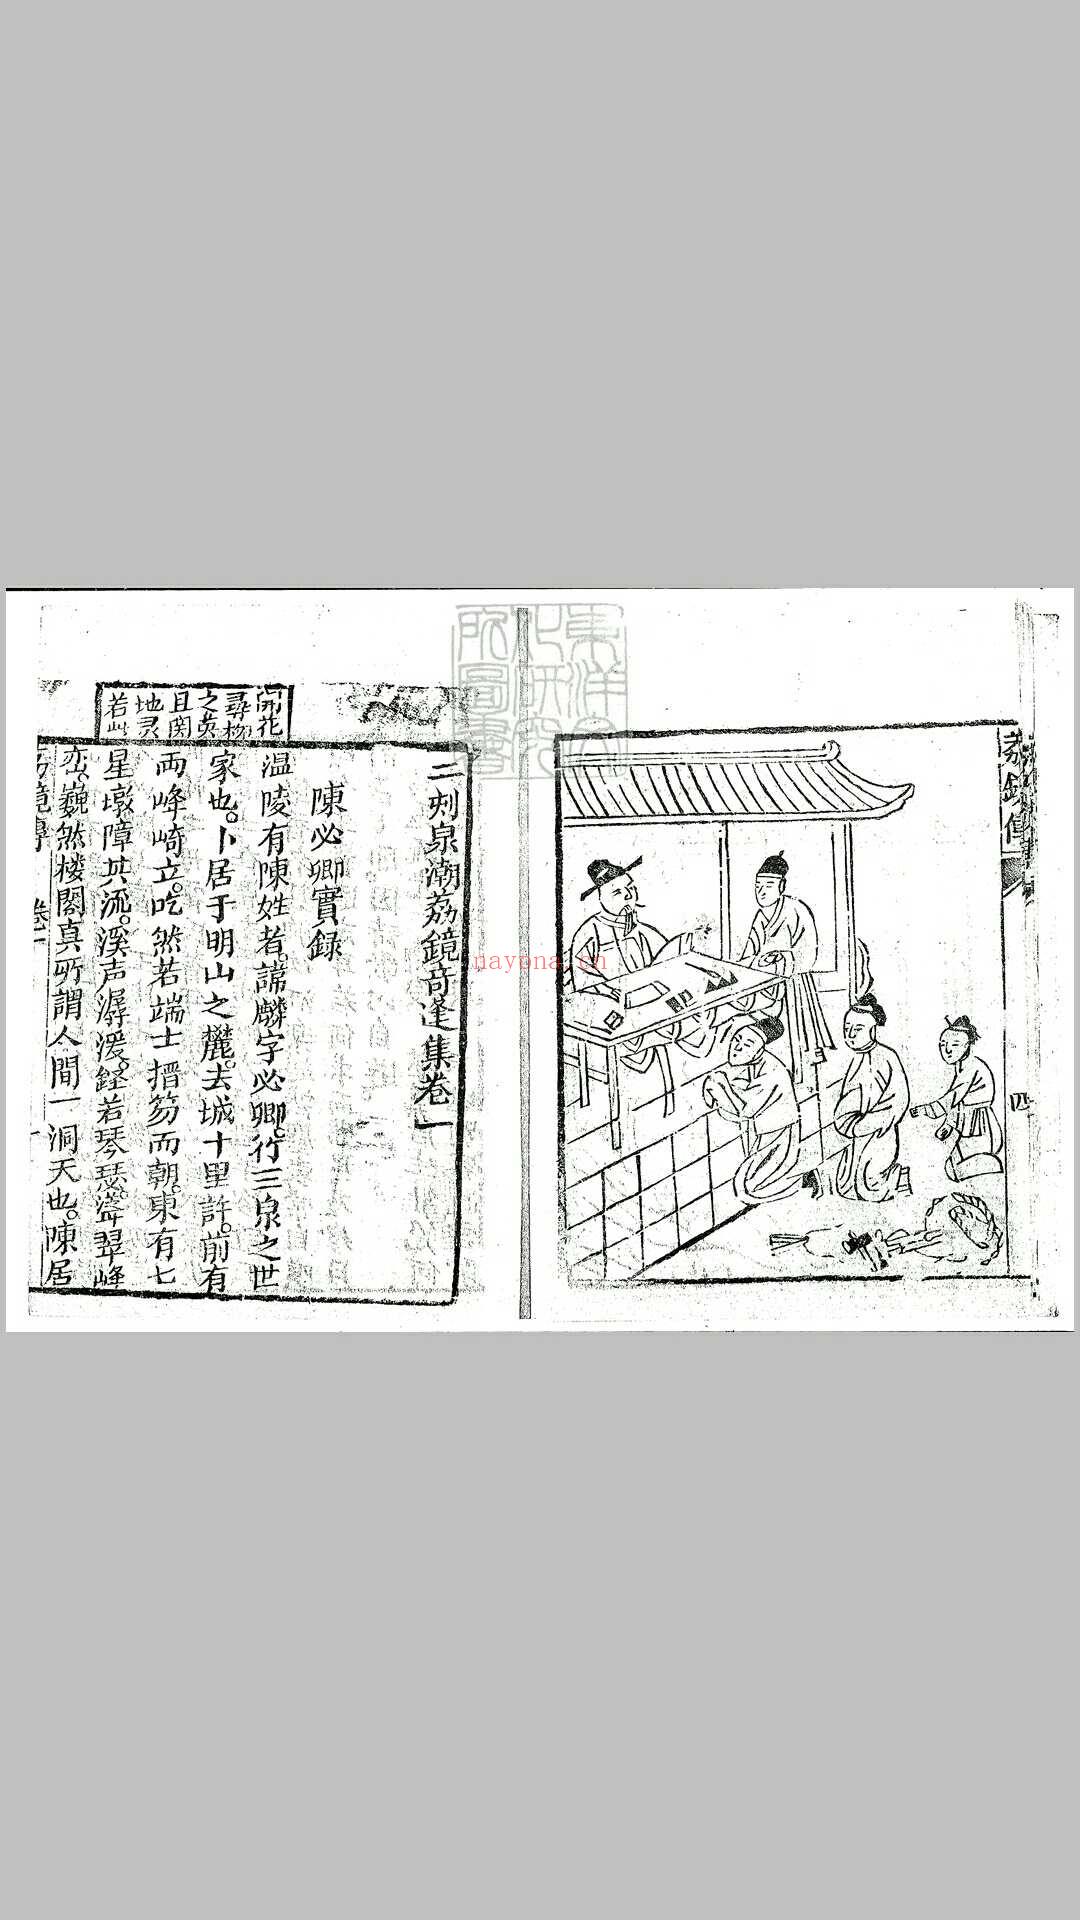 荔鏡傳
四
東洋文
化研究
所圖書
nayona.cn
二刻泉潮荔鏡奇逢集卷一
陳必卿實録
温陵有陳姓者諱麟字必卿行三泉之世
家也卜居于明山之麓去城十里許前有
両峰崎立吃然若端士搢笏而朝東有七
星墩障其流溪声潺湲鏗若琴瑟聳翠峰
巒巍然楼閣真所謂人間一洞天也陳居
開花
尋物
之英
且関
地灵
若此
荔鏡傳 卷一